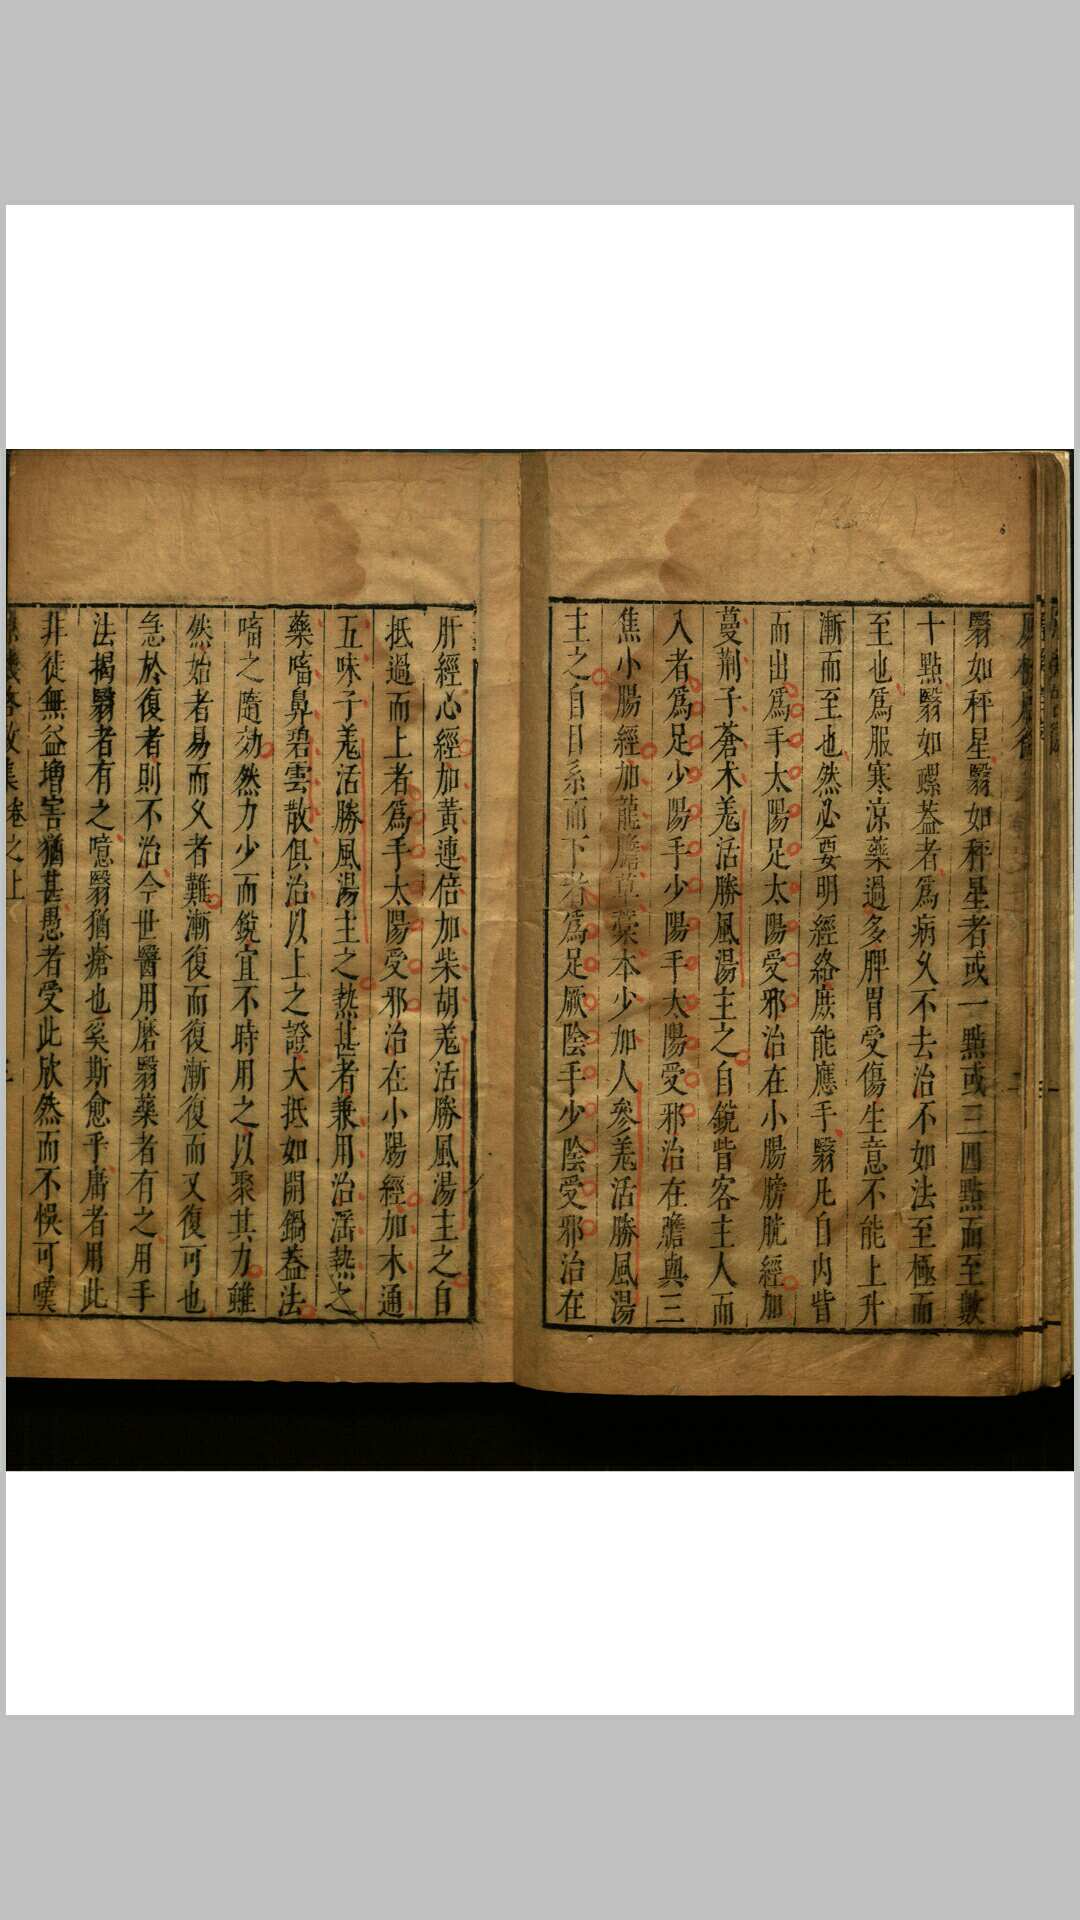 翳如秤星翳如秤星者或一點或三四點而至數
十點翳如螺蓋者爲病久不去治不如法至極而
至也爲服寒凉藥過多脾胃受傷生意不能上升
漸而至也然必要明經絡庶能應手翳凡自内眥
而出爲手太陽足太陽受邪治在小腸膀胱經加
蔓荆子蒼术羗活勝風湯主之自銳眥客主人而
入者爲足少陽手少陽手太陽受邪治在膽與三
焦小腸經加龍膽草藁本少加人參羗活勝風湯
主之自目系而下者爲足厥陰手少陰受邪治在
肝經心經加黃連倍加柴胡羗活勝風湯主之自
抵過而上者爲手太陽受邪治在小腸經加木通
五味子羗活勝風湯主之熱甚者兼用治滛熱之
藥㗜鼻碧雲散俱治以上之證大抵如開鍋蓋法
㗜之隨効然力少而銳宜不時用之以聚其力雖
然始者易而久者難漸復而復漸復而又復可也
急於復者則不治今世醫用磨翳藥者有之用手
法揭翳者有之噫翳猶瘡也奚斯愈乎庸者用此
非徒無益增害猶甚愚者受此欣然而不悞可嘆
卷之上